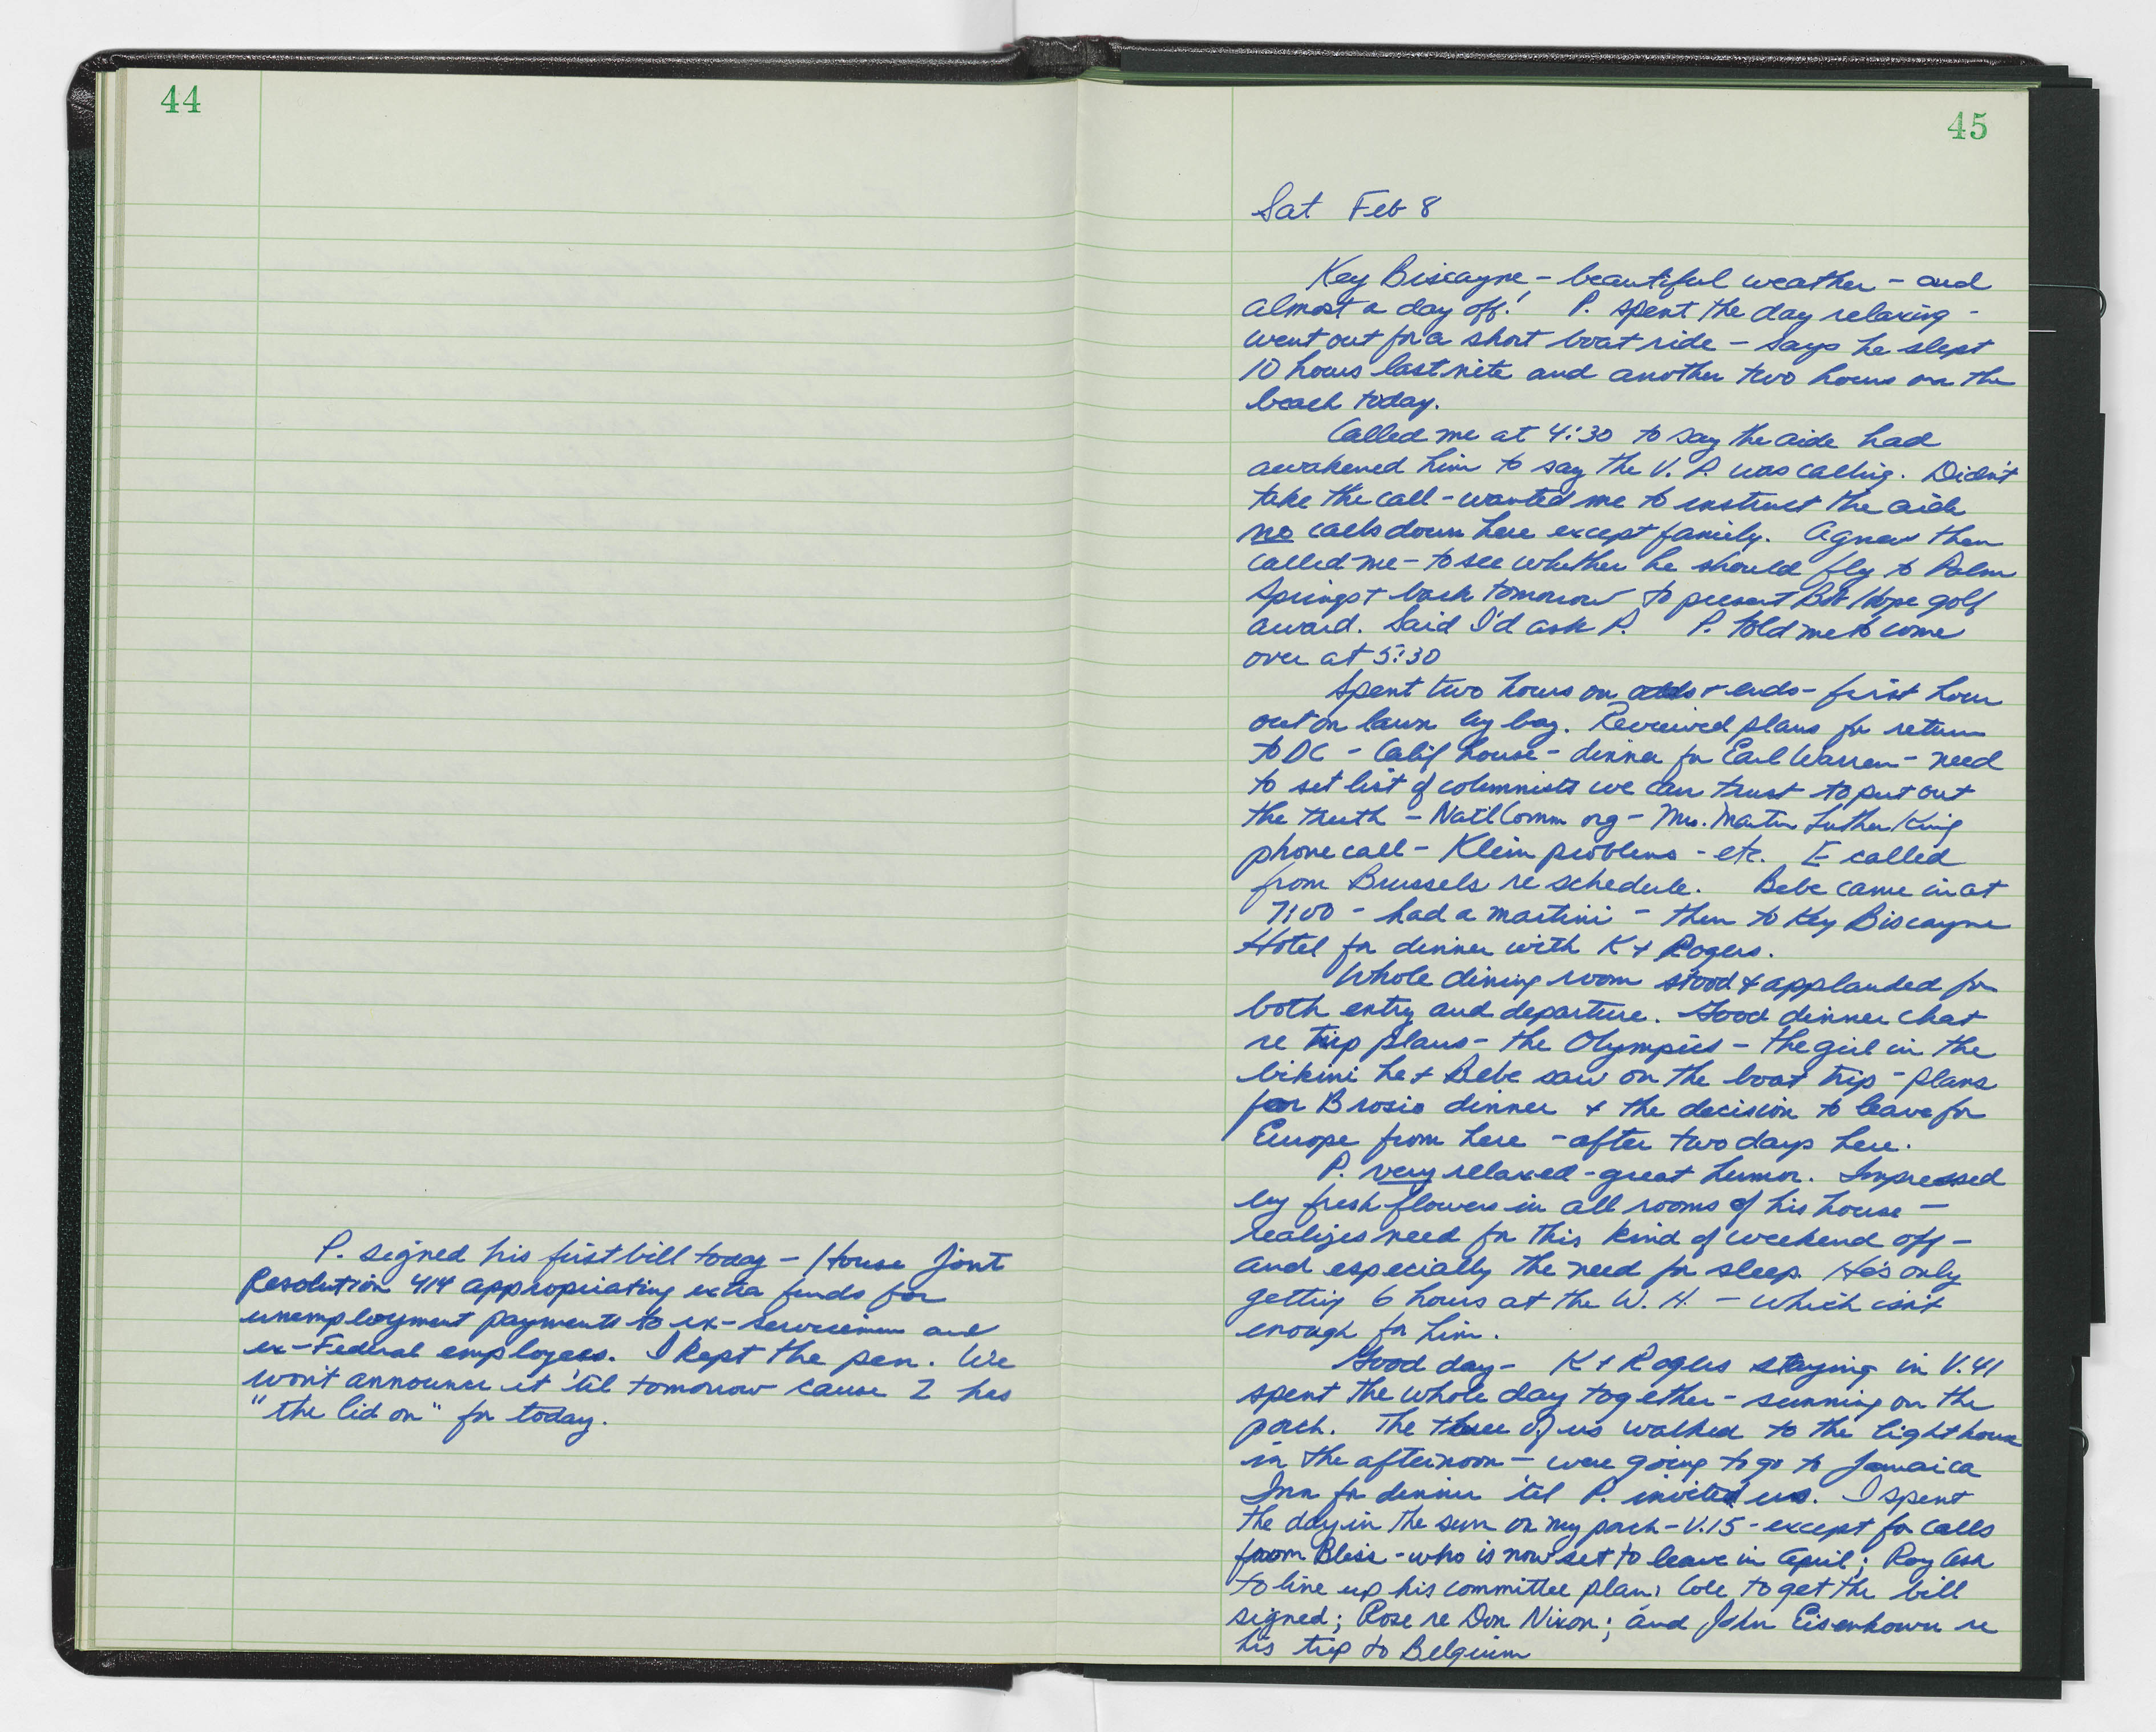 44
P. signed his first bill today – House Joint
Resolution 414 appropriating extra funds for
unemployment payments to ex-servicemen and
ex-Federal employees. I kept the pen. We
won't announce it 'til tomorrow cause Z has
"the lid on" for today.
45
Sat Feb 8
Key Biscayne – beautiful weather – and
almost a day off! P. spent the day relaxing –
went out for a short boat ride – says he slept
10 hours last nite and another two hours on the
beach today.
Called me at 4:30 to say the aide had
awakened him to say the V.P. was calling. Didn't
take the call – wanted me to instruct the aide
no calls down here except family. Agnew then
called me – to see whether he should fly to Palm
Springs + back tomorrow to present Bob Hope golf
award. Said I'd ask P. P. told me to come
over at 5:30
Spent two hours on odds + ends – first hour
out on lawn by bay. Reviewed plans for return
to DC – Calif house – dinner for Earl Warren – need
to set list of columnists we can trust to put out
the truth – Nat'l Comm org – Mrs. Martin Luther King
phone call – Klein problems – etc. E called
from Brussels re schedule. Bebe came in at
7:00 – had a martini – then to Key Biscayne
Hotel for dinner with K + Rogers.
Whole dining room stood + applauded for
both entry and departure. Good dinner chat
re trip plans – the Olympics – the girl in the
bikini he + Bebe saw on the boat trip – plans
for Brosio dinner + the decision to leave for
Europe from here – after two days here.
P. very relaxed – great humor. Impressed
by fresh flowers in all rooms of his house –
realizes need for this kind of weekend off –
and especially the need for sleep. He's only
getting 6 hours at the W.H. – which isn't
enough for him.
Good day – K + Rogers staying in V.41
spent the whole day together – sunning on the
porch. The three of us walked to the lighthouse
in the afternoon – were going to go to Jamaica
Inn for dinner 'til P. invited us. I spent
the day in the sun on my porch – V.15 – except for calls
from Bliss – who is now set to leave in April; Roy Ash
to line up his committee plan; Cole to get the bill
signed; Rose re Don Nixon; and John Eisenhower re
his trip to Belgium